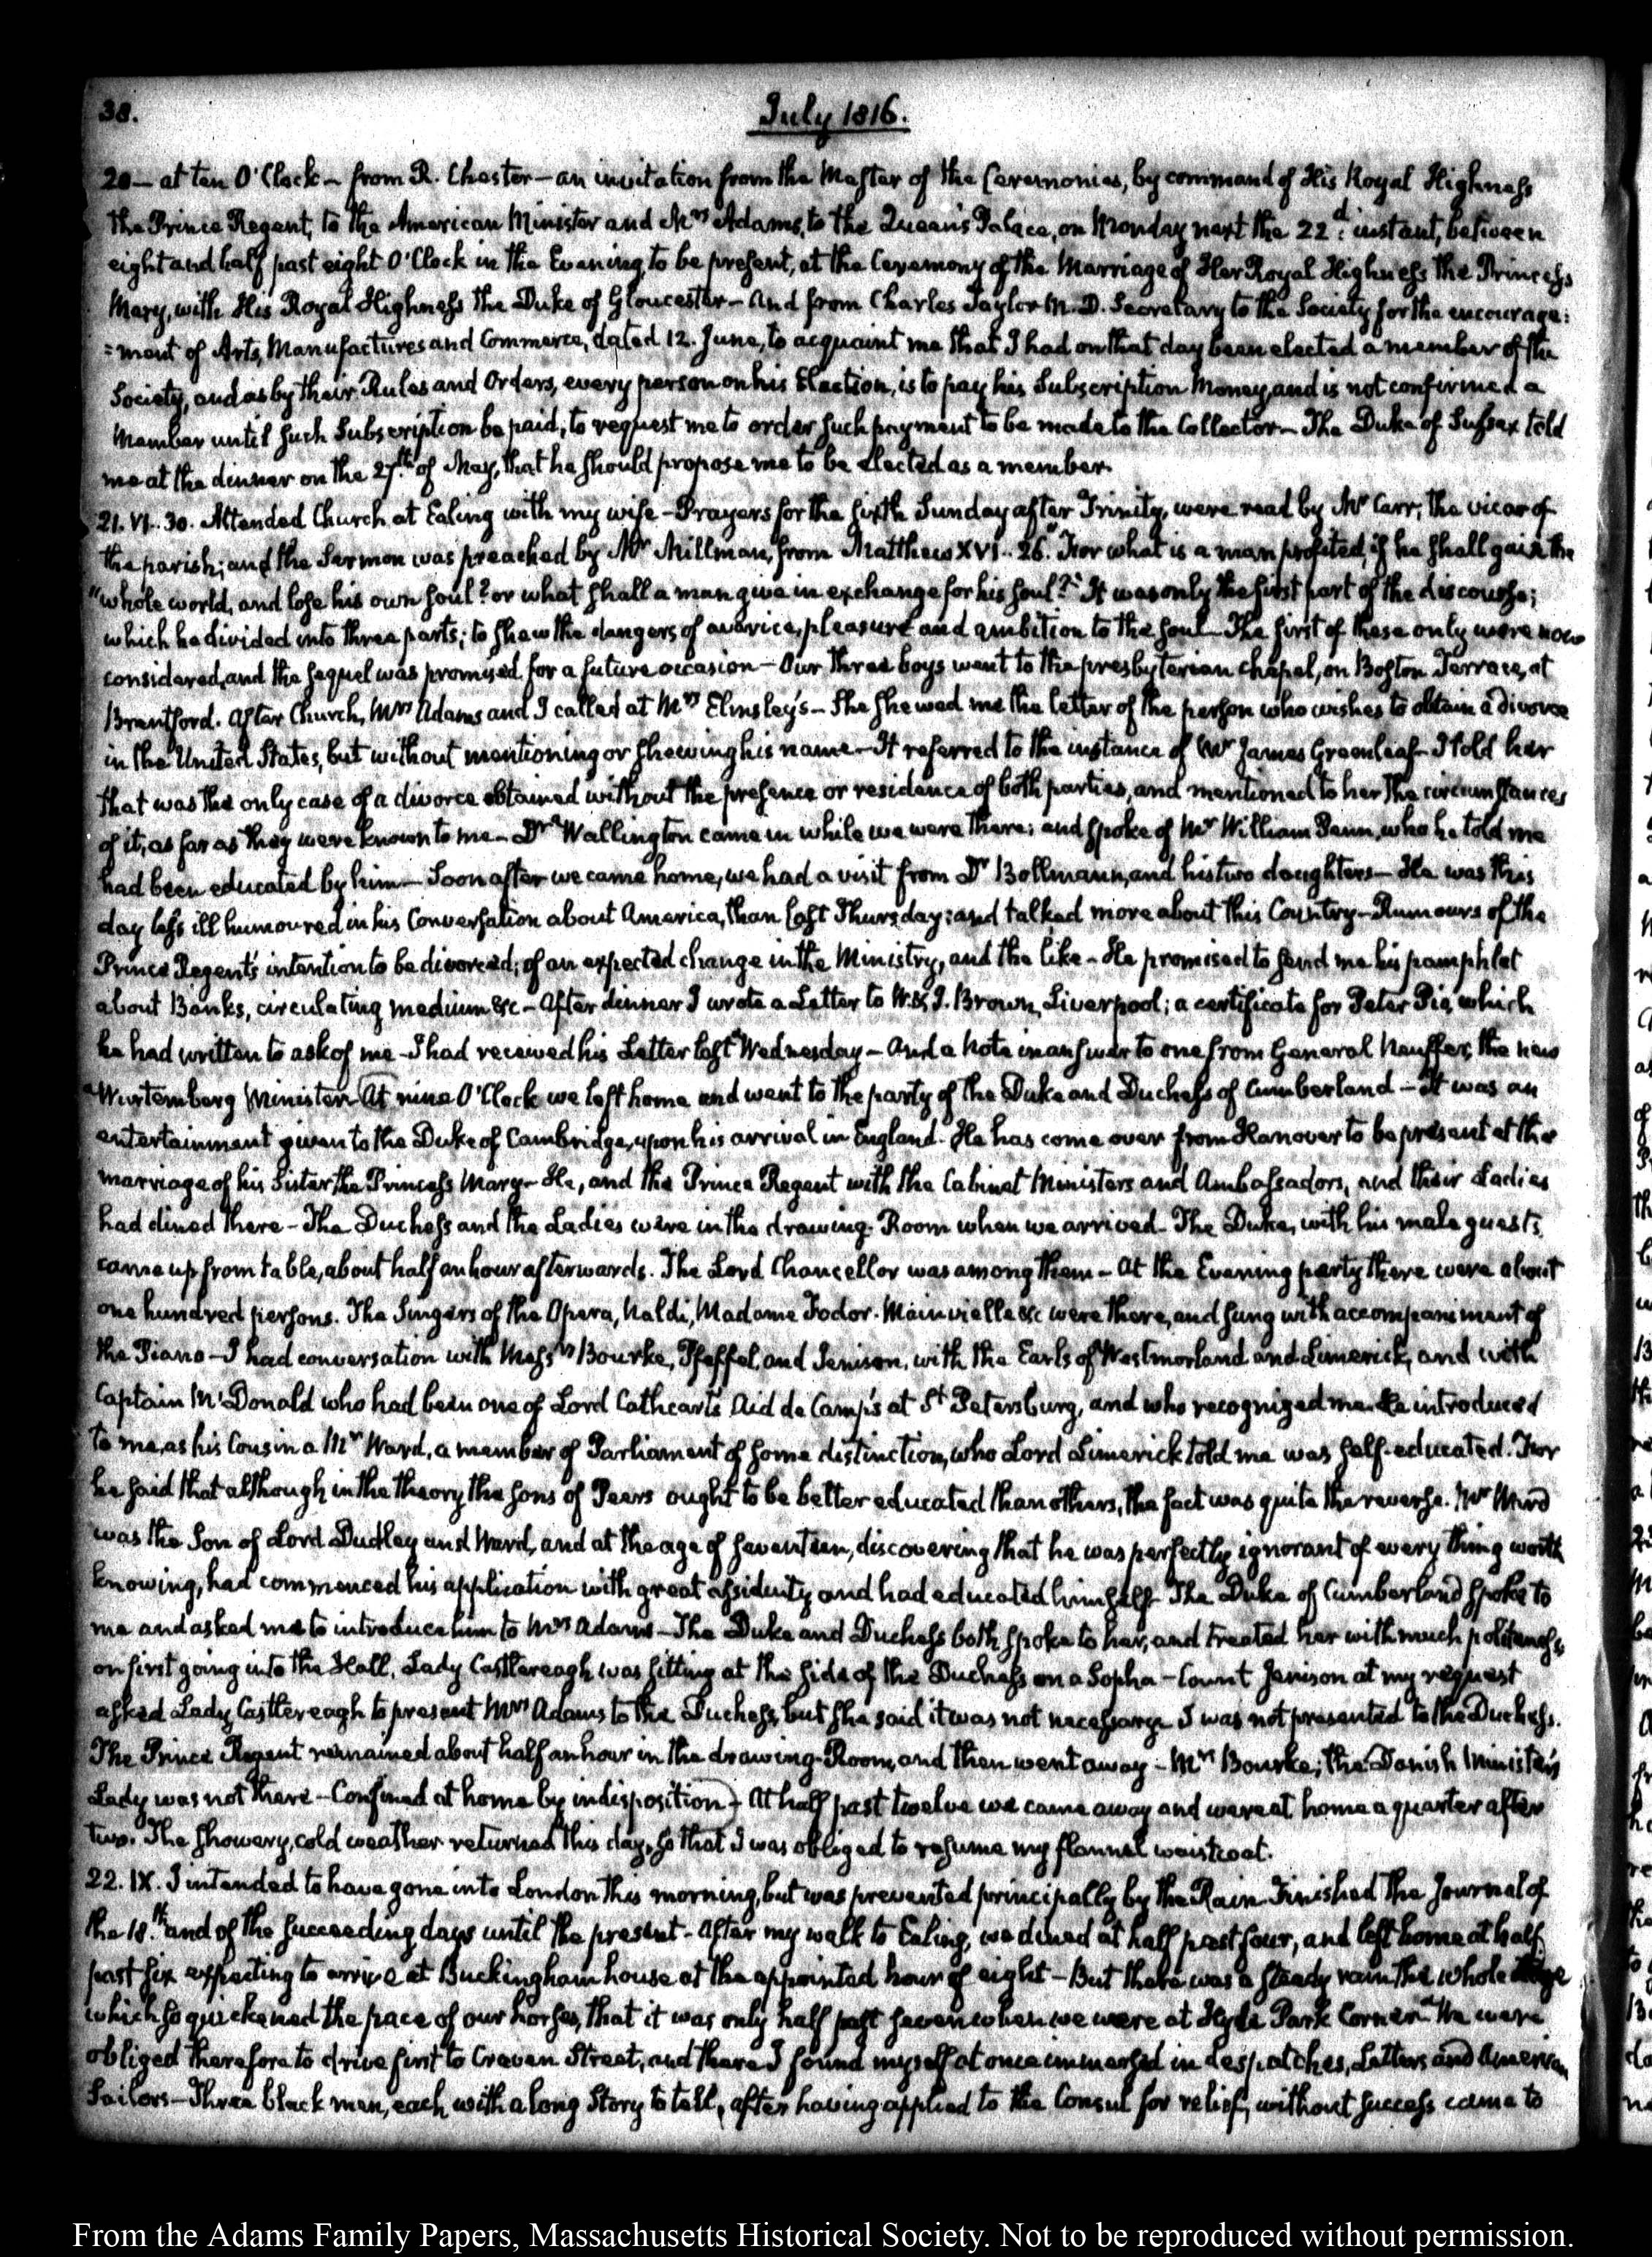 38.
July 1816.
20 — at ten O'Clock — from R. Chester — an invitation from the Master of the Ceremonies, by command of His Royal Highness
the Prince Regent, to the American Minister and Mrs Adams, to the Queen's Palace, on Monday next the 22d: instant, between
eight and half past eight O'Clock in the Evening, to be present, at the Ceremony of the Marriage of Her Royal Highness the Princess
Mary, with His Royal Highness the Duke of Gloucester — And from Charles Taylor M.D. Secretary to the Society for the encourage:
=ment of Arts, Manufactures and Commerce, dated 12. June, to acquaint me that I had on that day been elected a member of the
Society, and as by their Rules and Orders, every person on his Election, is to pay his Subscription Money, and is not confirmed a
Member until such Subscription be paid, to request me to order such payment to be made to the Collector — The Duke of Sussex told
me at the dinner on the 27th of May, that he should propose me to be elected as a member.
21. VI. 30. Attended Church at Ealing with my wife — Prayers for the sixth Sunday after Trinity, were read by Mr Carr, the vicar of
the parish; and the Sermon was preached by Mr Millman, from Matthew XVI. 26. "For what is a man profited, if he shall gain the
"whole world, and lose his own soul? or what shall a man give in exchange for his soul?" It was only the first part of the discourse;
which he divided into three parts; to shew the dangers of avarice, pleasure and ambition to the soul — The first of these only were now
considered, and the sequel was promised for a future occasion — Our three boys went to the presbyterian chapel, on Boston Terrace, at
Brentford. After Church, Mrs Adams and I called at Mrs Elmsley's — She shewed me the letter of the person who wishes to obtain a divorce
in the United States, but without mentioning or shewing his name — It referred to the instance of Mr James Greenleaf — I told her
that was the only case of a divorce obtained without the presence or residence of both parties, and mentioned to her the circumstances
of it, as far as they were known to me — Dr Wallington came in while we were there; and spoke of Mr William Penn, who he told me
had been educated by him — Soon after we came home, we had a visit from Dr Bollmann, and his two daughters — He was this
day less ill humoured in his Conversation about America, than last Thursday; and talked more about this Country — Rumours of the
Prince Regent's intention to be divorced; of an expected change in the Ministry, and the like — He promised to send me his pamphlet
about Banks, circulating medium &c — After dinner I wrote a Letter to W. & J. Brown, Liverpool; a certificate for Peter Pie, which
he had written to ask of me — I had received his Letter last Wednesday — And a Note in answer to one from General Neuffer, the new
Wurtemberg Minister — At nine O'Clock we left home and went to the party of the Duke and Duchess of Cumberland — It was an
entertainment given to the Duke of Cambridge, upon his arrival in England. He has come over from Hanover to be present at the
marriage of his Sister the Princess Mary — He, and the Prince Regent with the Cabinet Ministers and Ambassadors, and their Ladies
had dined there — The Duchess and the Ladies were in the drawing-Room when we arrived — The Duke, with his male guests
came up from table, about half an hour afterwards. The Lord Chancellor was among them — At the Evening party there were about
one hundred persons. The Singers of the Opera, Naldi, Madame Fodor-Mainvielle &c were there, and sung with accompaniment of
the Piano — I had conversation with Messrs Bourke, Pfeffel, and Jenison, with the Earls of Westmorland and Limerick, and with
Captain McDonald who had been one of Lord Cathcart's Aid de Camps at St Petersburg, and who recognized me. He introduced
to me, as his Cousin a Mr Ward, a member of Parliament of some distinction, who Lord Limerick told me was self-educated. For
he said that although in the theory the sons of Peers ought to be better educated than others, the fact was quite the reverse. Mr Ward
was the Son of Lord Dudley and Ward, and at the age of seventeen, discovering that he was perfectly ignorant of every thing worth
knowing, had commenced his application with great assiduity and had educated himself — The Duke of Cumberland spoke to
me and asked me to introduce him to Mrs Adams — The Duke and Duchess both spoke to her, and treated her with much politeness,
on first going into the Hall, Lady Castlereagh was sitting at the side of the Duchess on a Sopha — Count Jenison at my request
asked Lady Castlereagh to present Mrs Adams to the Duchess, but she said it was not necessary — I was not presented to the Duchess.
The Prince Regent remained about half an hour in the drawing-Room, and then went away — Mrs Bourke, the Danish Minister's
Lady was not there — Confined at home by indisposition — At half past twelve we came away and were at home a quarter after
two. The showery, cold weather returned this day, so that I was obliged to resume my flannel waistcoat.
22. IX. I intended to have gone into London this morning, but was prevented principally by the Rain — Finished the Journal of
the 18th and of the succeeding days until the present — After my walk to Ealing, we dined at half past four, and left home at half
past six expecting to arrive at Buckingham house at the appointed hour of eight — But there was a steady rain the whole
which so quickened the pace of our horses, that it was only half past seven when we were at Hyde Park Corner — We were
obliged therefore to drive first to Craven Street, and there I found myself at once immersed in despatches, Letters and American
Sailors — Three black men, each with a long Story to tell, after having applied to the Consul for relief, without success came to
From the Adams Family Papers, Massachusetts Historical Society. Not to be reproduced without permission.